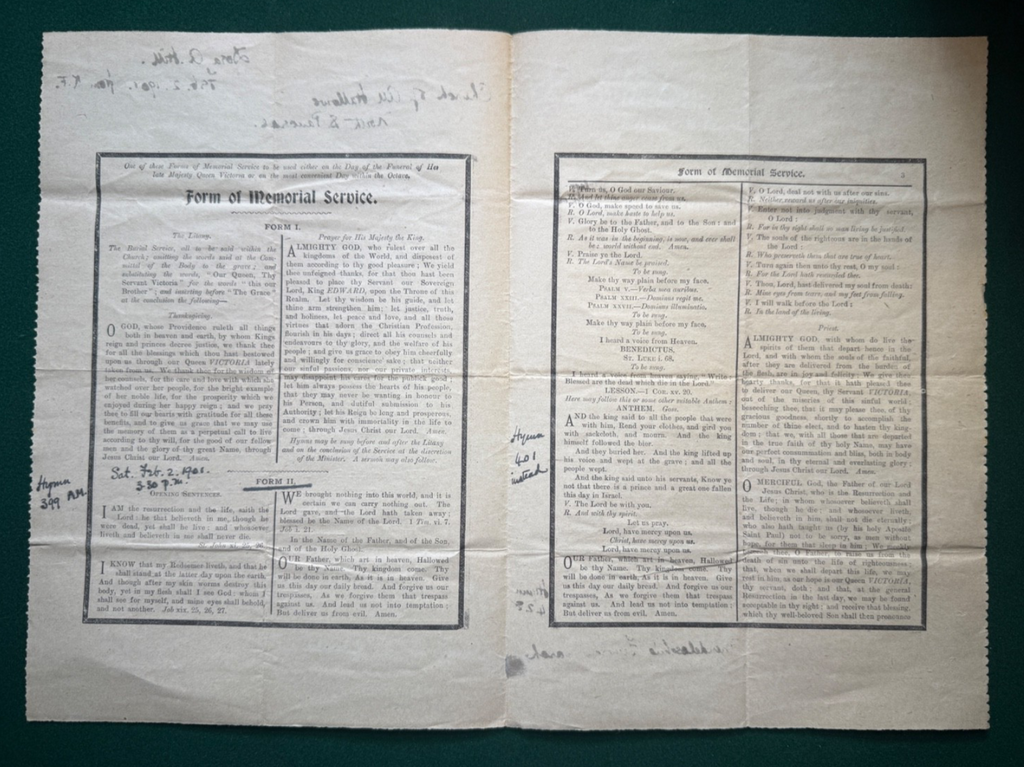 One of these Forms of Memorial Service to be used either on the Day of the Funeral of Her
late Majesty Queen Victoria or on the most convenient Day within the Octave.
Form of Memorial Service.
FORM I.
The Litany.
The Burial Service, all to be said within the
Church; omitting the words said at the Com-
mittal of the Body to the grave; and
substituting the words, "Our Queen, Thy
Servant Victoria" for the words "this our
Brother"; and omitting before "The Grace"
at the conclusion the following—
Thanksgiving.
O GOD, whose Providence ruleth all things
both in heaven and earth, by whom Kings
reign and princes decree justice, we thank thee
for all the blessings which thou hast bestowed
upon us through our Queen VICTORIA lately
taken from us. We thank thee for the wisdom of
her counsels, for the care and love with which she
watched over her people, for the bright example
of her noble life, for the prosperity which we
enjoyed during her happy reign; and we pray
thee to fill our hearts with gratitude for all these
benefits, and to give us grace that we may use
the memory of them as a perpetual call to live
according to thy will, for the good of our fellow
men and the glory of thy great Name, through
Jesus Christ our Lord. Amen.
Sat. Feb. 2. 1901.
3.30 p.m.
Hymn
399 A.M.
OPENING SENTENCES.
I AM the resurrection and the life, saith the
Lord: he that believeth in me, though he
were dead, yet shall he live: and whosoever
liveth and believeth in me shall never die.
I KNOW that my Redeemer liveth, and that he
shall stand at the latter day upon the earth.
And though after my skin worms destroy this
body, yet in my flesh shall I see God: whom I
shall see for myself, and mine eyes shall behold,
and not another. Job xix. 25, 26, 27.
Prayer for His Majesty the King.
ALMIGHTY GOD, who rulest over all the
kingdoms of the World, and disposest of
them according to thy good pleasure; We yield
thee unfeigned thanks, for that thou hast been
pleased to place thy Servant our Sovereign
Lord, King EDWARD, upon the Throne of this
Realm. Let thy wisdom be his guide, and let
thine arm strengthen him; let justice, truth,
and holiness, let peace and love, and all those
virtues that adorn the Christian Profession,
flourish in his days; direct all his counsels and
endeavours to thy glory, and the welfare of his
people; and give us grace to obey him cheerfully
and willingly for conscience sake; that neither
our sinful passions, nor our private interests
may disappoint his cares for the publick good;
let him always possess the hearts of his people,
that they may never be wanting in honour to
his Person, and dutiful submission to his
Authority; let his Reign be long and prosperous,
and crown him with immortality in the life to
come; through Jesus Christ our Lord. Amen.
Hymns may be sung before and after the Litany
and on the conclusion of the Service at the discretion
of the Minister. A sermon may also follow.
FORM II.
WE brought nothing into this world, and it is
certain we can carry nothing out. The
Lord gave, and the Lord hath taken away;
blessed be the Name of the Lord. 1 Tim. vi. 7.
Job i. 21.
In the Name of the Father, and of the Son,
and of the Holy Ghost.
OUR Father, which art in heaven, Hallowed
be thy Name. Thy kingdom come. Thy
will be done in earth, As it is in heaven. Give
us this day our daily bread. And forgive us our
trespasses, As we forgive them that trespass
against us. And lead us not into temptation;
But deliver us from evil. Amen.
Form of Memorial Service. 3
V. Turn us, O God our Saviour.
R. And let thine anger cease from us.
V. O God, make speed to save us.
R. O Lord, make haste to help us.
V. Glory be to the Father, and to the Son: and
to the Holy Ghost.
R. As it was in the beginning, is now, and ever shall
be: world without end. Amen.
V. Praise ye the Lord.
R. The Lord's Name be praised.
To be sung.
Make thy way plain before my face.
PSALM V.—Verba mea auribus.
PSALM XXIII.—Dominus regit me.
PSALM XXVII.—Dominus illuminatio.
To be sung.
Make thy way plain before my face.
To be sung.
I heard a voice from Heaven.
BENEDICTUS.
St. Luke i. 68.
To be sung.
I heard a voice from heaven saying, "Write
Blessed are the dead which die in the Lord."
LESSON.—1 Cor. xv. 20.
Here may follow this or some other suitable Anthem:
ANTHEM. Goss.
Hymn
401
instead
AND the king said to all the people that were
with him, Rend your clothes, and gird you
with sackcloth, and mourn. And the king
himself followed the bier.
And they buried her. And the king lifted up
his voice and wept at the grave; and all the
people wept.
And the king said unto his servants, Know ye
not that there is a prince and a great one fallen
this day in Israel.
V. The Lord be with you.
R. And with thy spirit.
Let us pray.
Lord, have mercy upon us.
Christ, have mercy upon us.
Lord, have mercy upon us.
OUR Father, which art in heaven, Hallowed
be thy Name. Thy kingdom come. Thy
will be done in earth, As it is in heaven. Give
us this day our daily bread. And forgive us our
trespasses, As we forgive them that trespass
against us. And lead us not into temptation;
But deliver us from evil. Amen.
V. O Lord, deal not with us after our sins.
R. Neither reward us after our iniquities.
V. Enter not into judgment with thy servant,
O Lord:
R. For in thy sight shall no man living be justified.
V. The souls of the righteous are in the hands of
the Lord:
R. Who preserveth them that are true of heart.
V. Turn again then unto thy rest, O my soul:
R. For the Lord hath rewarded thee.
V. Thou, Lord, hast delivered my soul from death:
R. Mine eyes from tears; and my feet from falling.
V. I will walk before the Lord:
R. In the land of the living.
Priest.
ALMIGHTY GOD, with whom do live the
spirits of them that depart hence in the
Lord, and with whom the souls of the faithful,
after they are delivered from the burden of
the flesh, are in joy and felicity: We give thee
hearty thanks, for that it hath pleased thee
to deliver our Queen, thy Servant VICTORIA,
out of the miseries of this sinful world;
beseeching thee, that it may please thee, of thy
gracious goodness, shortly to accomplish the
number of thine elect, and to hasten thy king-
dom; that we, with all those that are departed
in the true faith of thy holy Name, may have
our perfect consummation and bliss, both in body
and soul, in thy eternal and everlasting glory;
through Jesus Christ our Lord. Amen.
O MERCIFUL God, the Father of our Lord
Jesus Christ, who is the Resurrection and
the Life; in whom whosoever believeth
shall live, though he die; and whosoever liveth,
and believeth in him, shall not die eternally;
who also hath taught us (by his holy Apostle
Saint Paul) not to be sorry, as men without
hope, for them that sleep in him; We
thee, O Father, to raise us from the
death of sin unto the life of righteousness;
that, when we shall depart this life, we may
rest in him, as our hope is our Queen VICTORIA,
thy servant, doth; and that, at the general
Resurrection in the last day, we may be found
acceptable in thy sight; and receive that blessing,
which thy well-beloved Son shall then pronounce